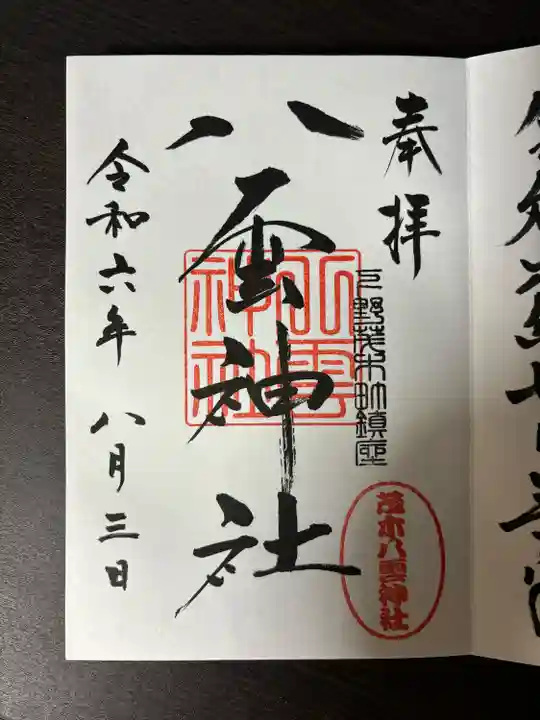 奉拝
下野茂木町鎮座
茂木八雲神社
八雲神社
八雲神社
令和六年 八月三日